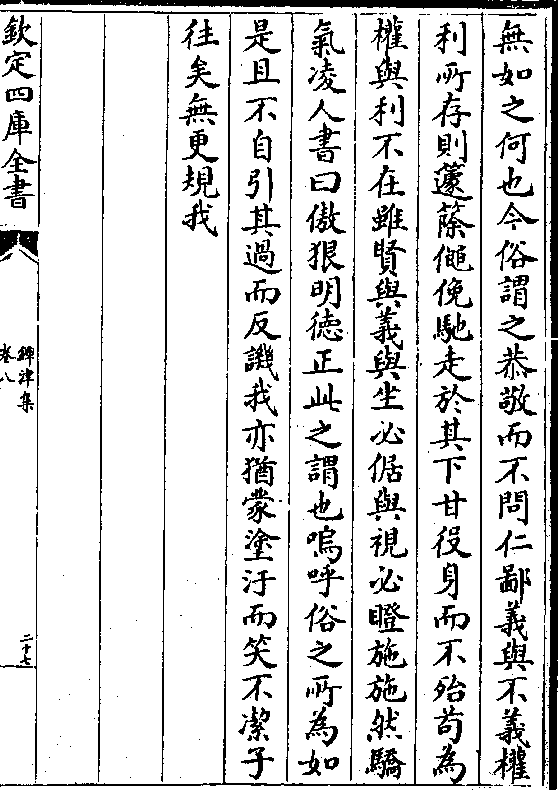 無如之何也今俗謂之恭敬而不問仁鄙義與不義權
利所存則蘧蒢僶俛馳走於其下甘役身而不殆茍為
權與利不在雖賢與義與坐必倨與視必瞪施施然驕
氣凌人書曰傲狠明徳正此之謂也嗚呼俗之所為如
是且不自引其過而反譏我亦猶蒙塗汙而笑不潔子
往矣無更規我
欽定四庫全書
鐔津集
卷八
二十七